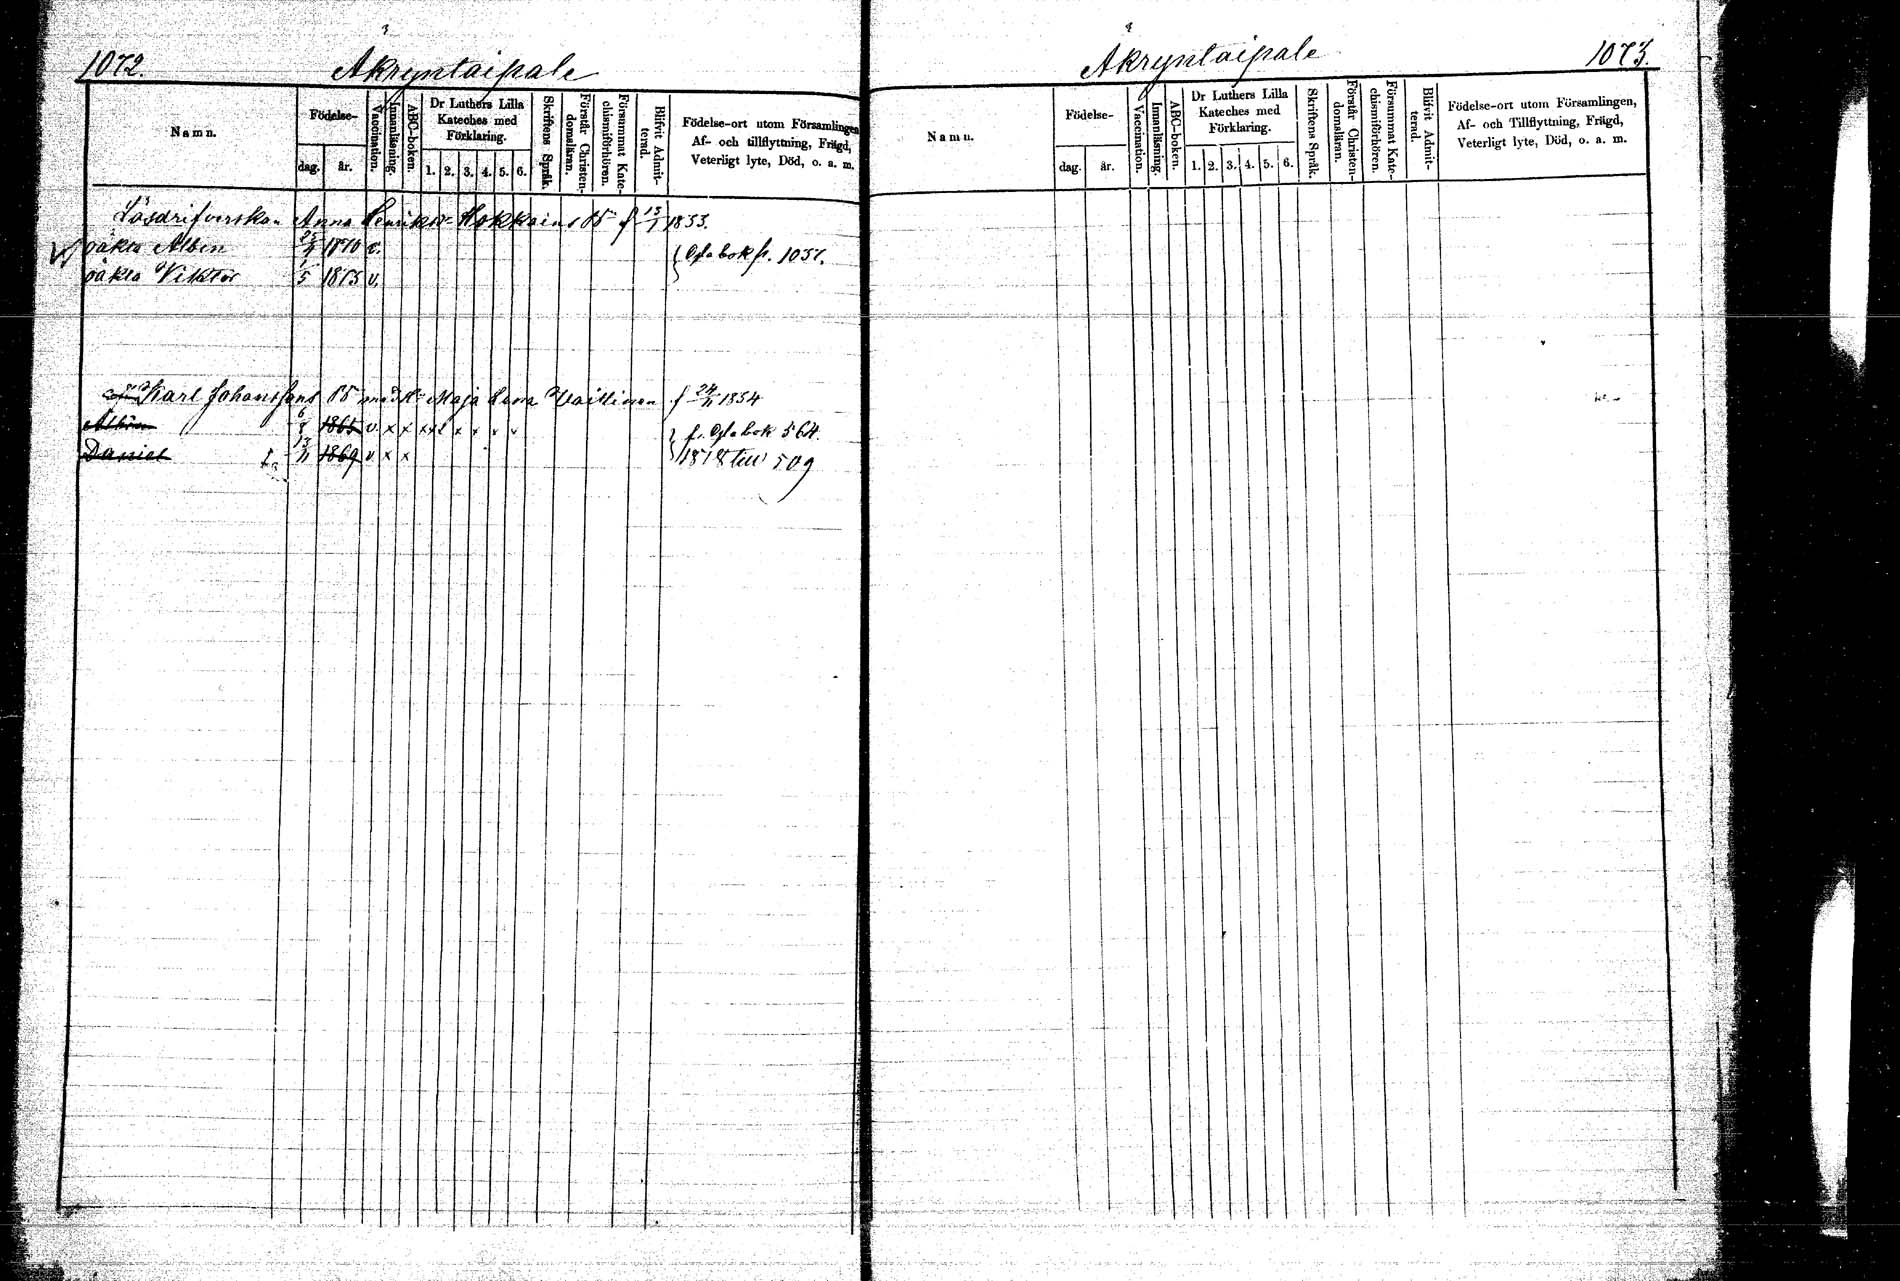 1072.
Äkryntaipale
Namn.
Födelse-
dag.
år.
Vaccination.
Innanläsning.
ABC-boken.
Dr Luthers Lilla
Kateches med
Förklaring.
1. 2. 3. 4. 5. 6.
Skriftens Språk.
Förstår Christen-
domsläran.
Försummat Kate-
chismiförhören.
Blifvit Admit-
terad.
Födelse-ort utom Församlingen,
Af- och tillflyttning, Frägd,
Veterligt lyte, Död, o. a. m.
Lösdrifverskan Anna Henriksd:r Hokkains B:n f 13/1 1833.
oäkta Albin 25/4 1870 v.
oäkta Viktor 1/5 1873 v.
Ofla bok p. 1057.
Karl Johanssons B:n med H:u Maja Lena f 24/11 1834
Albin 6/8 1865 v. x x x x x x x
Daniel 13/11 1869 v x x
fr. Ofla bok 564.
1878 till 509
Äkryntaipale
1073.
Namn.
Födelse-
dag.
år.
Vaccination.
Innanläsning.
ABC-boken.
Dr Luthers Lilla
Kateches med
Förklaring.
1. 2. 3. 4. 5. 6.
Skriftens Språk.
Förstår Christen-
domsläran.
Försummat Kate-
chismiförhören.
Blifvit Admit-
terad.
Födelse-ort utom Församlingen,
Af- och Tillflyttning, Frägd,
Veterligt lyte, Död, o. a. m.